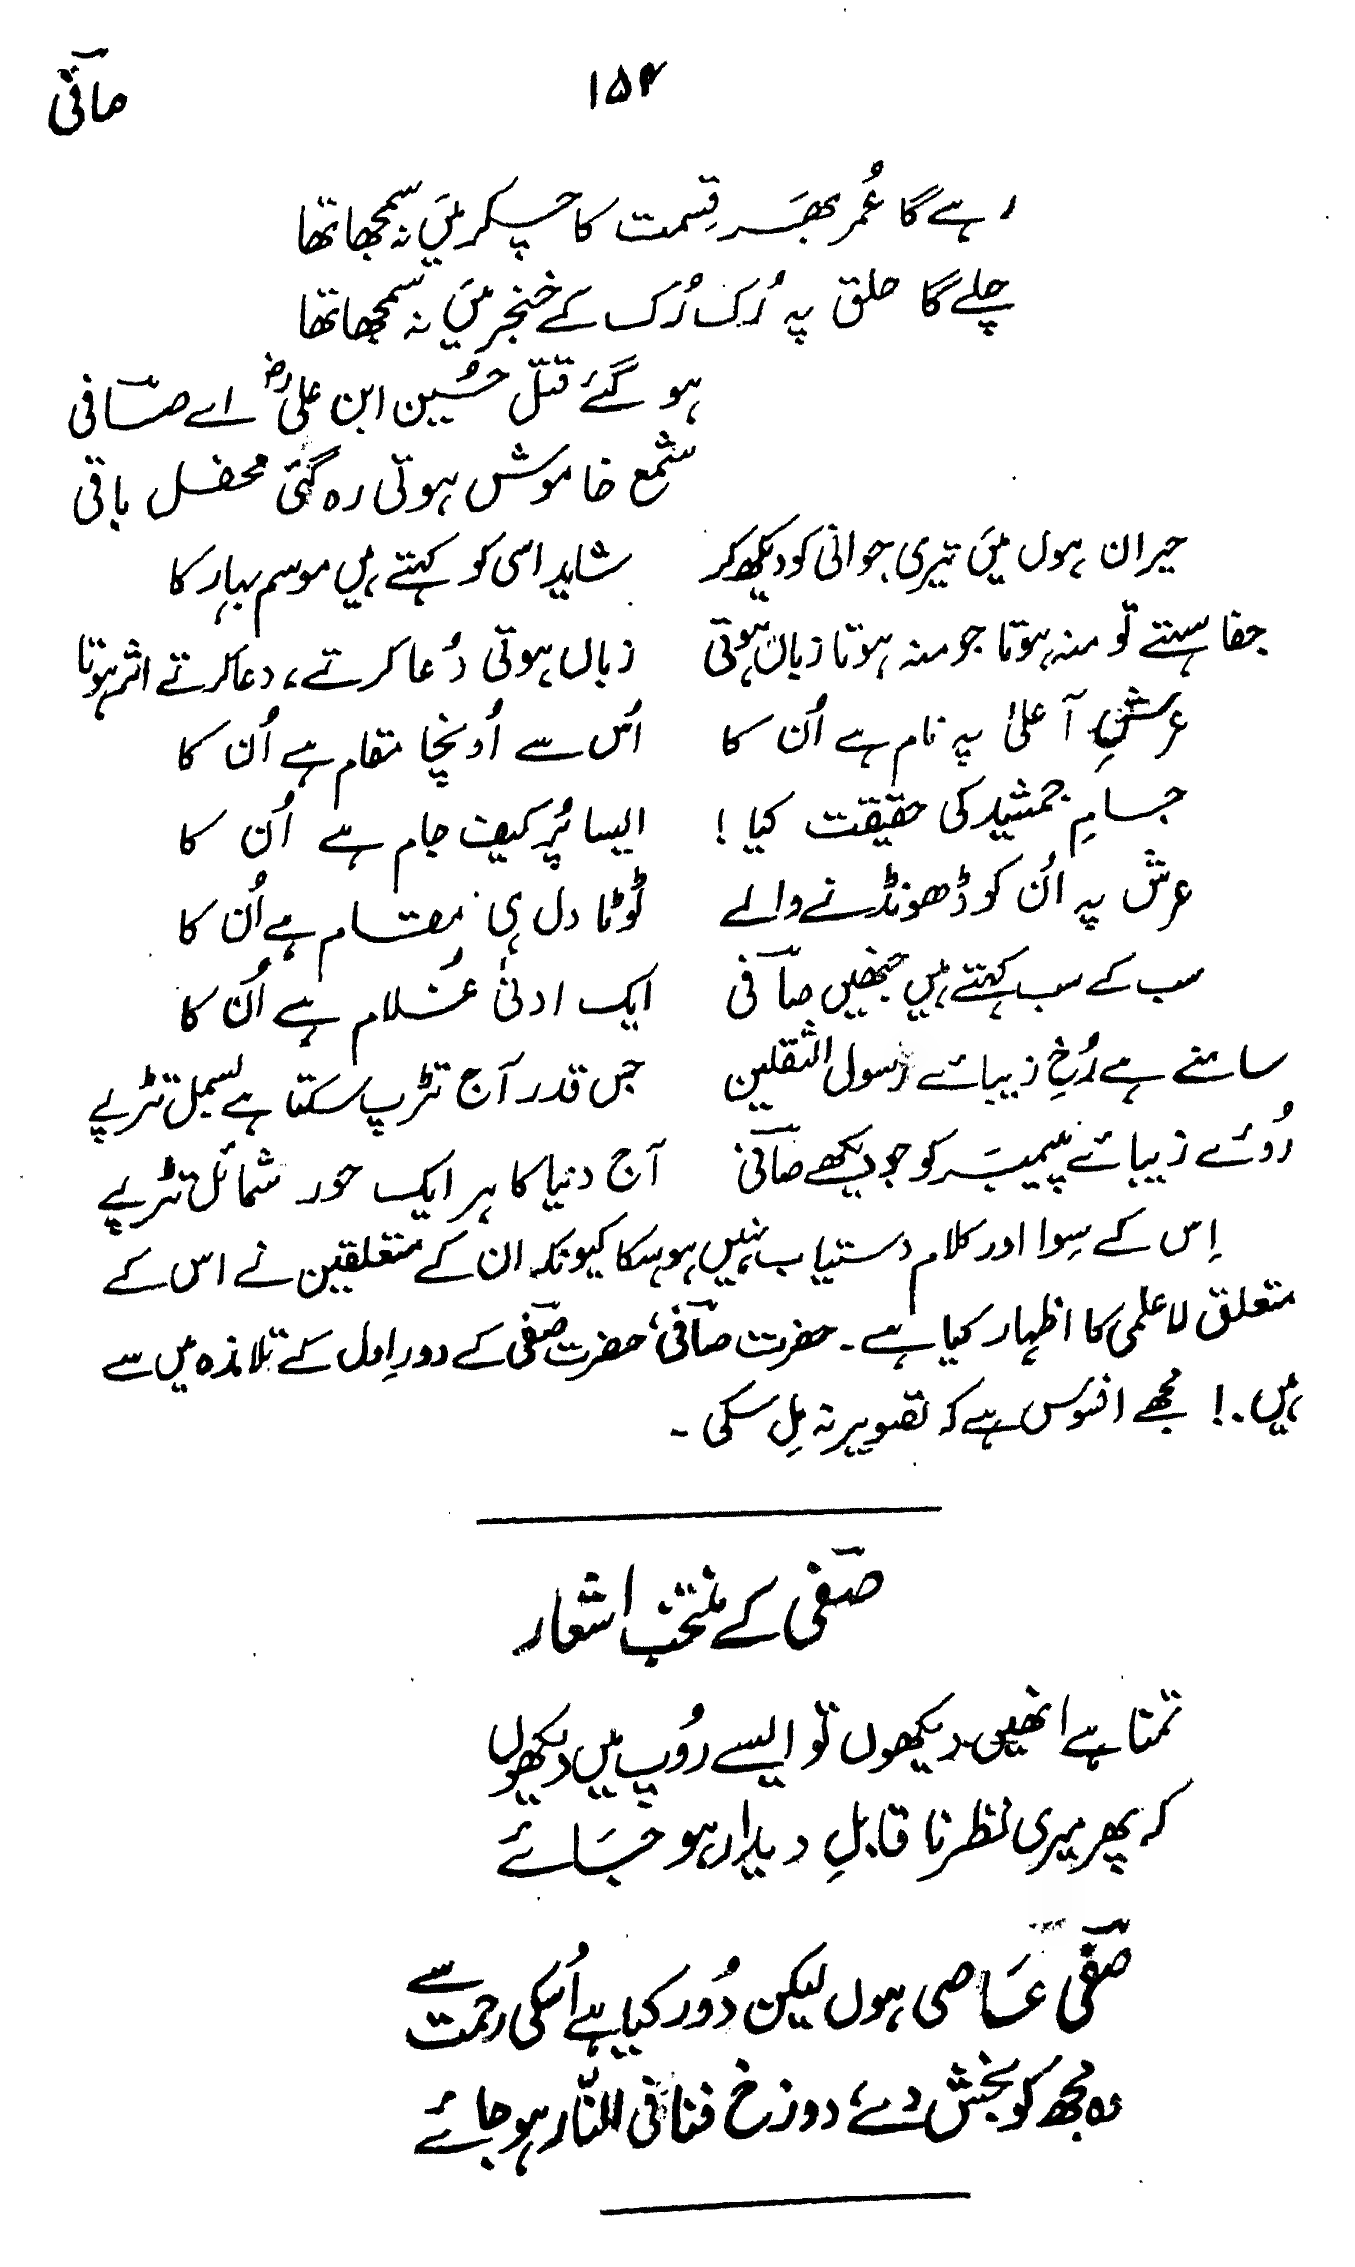 صافیؔ
۱۵۴
رہے گا عُمر بھَر قِسمت کا چکر میَں نہ سمجھا تھا
چلے گا حلق پہ رُک رُک کے خنجر میَں نہ سمجھا تھا
ہو گئے قتل حسُین ابن علیؓ اے صافیؔ
شمع خاموش ہوتی رہ گئی محفل باقی
حیران ہوں میَں تیری جوانی کو دیکھ کر شاید اسی کو کہتے ہیں موسم بہار کا
جفا سہتے تو منہ ہوتا جو منہ ہوتا زبان ہوتی زباں ہوتی دُعا کرتے، دعا کرتے اثر ہوتا
عرشِ آعلیٰ پہ نام ہے اُن کا اُس سے اُونچا مقام ہے اُن کا
جامِ جمشید کی حقیقت کیا ! ایسا پُر کیف جام ہے اُن کا
عرش پہ اُن کو ڈھونڈنے والے ٹوٹا دل ہی مقام ہے اُن کا
سب کے سب کہتے ہیں جنھیں صافیؔ ایک ادنیٰ غُلام ہے اُن کا
سامنے ہے رُخِ زیبائے رسول الثقلین جس قدر آج تڑپ سکتا ہے بسمل تڑپے
رُوئے زیبائے پیمبَر کو جو دیکھے صافیؔ آج دنیا کا ہر ایک حور شمائل تڑپے
اِس کے سِوا اور کلام دستیاب نہیں ہو سکا کیونکہ ان کے متعلقین نے اس کے
متعلق لاعلمی کا اظہار کیا ہے۔ حضرت صافیؔ، حضرت صفیؔ کے دورِ اول کے تلامذہ میں سے
ہیں.! مجھے افسوس ہے کہ تصویر نہ مِل سکی۔
صفیؔ کے منتخب اشعار
تمنا ہے انھیں دیکھوں تو ایسے رُوپ میں دیکھوں
کہ پھر میری نظر نا قابلِ دیدار ہو جَائے
صفیؔ عَاصی ہوں لیکن دُور کیا ہے اُسکی رحمت سے
وہ مجھ کو بخش دے، دوزخ فنا فی النّار ہو جائے